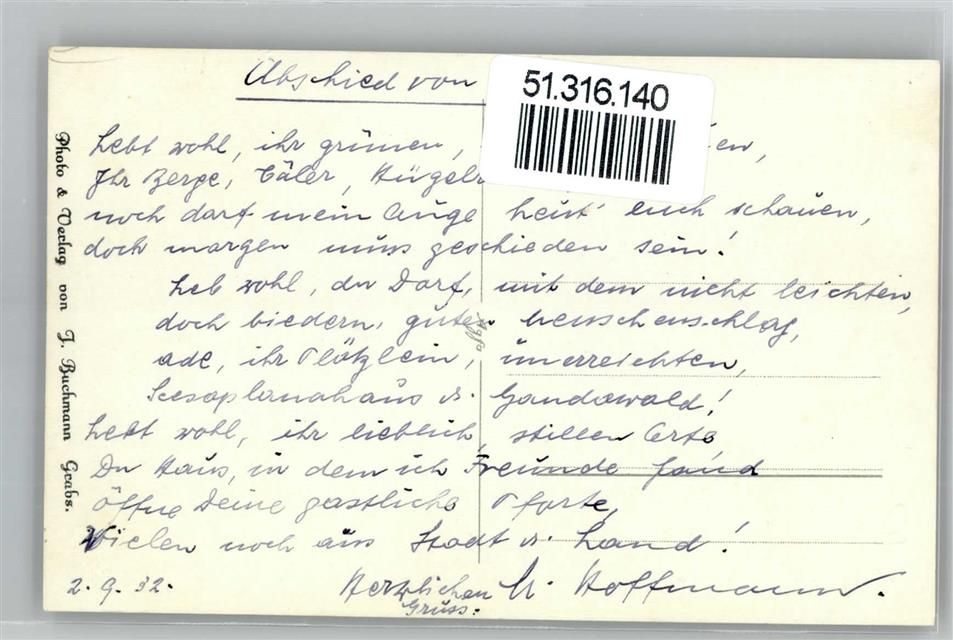 Abschied von
51.316.140
Lebt wohl, ihr grünen, en,
Ihr Berge, Täler, Hügel
noch darf mein Auge heut' euch schauen,
doch morgen muss geschieden sein!
Leb wohl, du Dorf, mit dem nicht leichten,
doch biedern, guten Menschenschlag,
ade, ihr Plätzlein, unerreichten,
Scesaplanahaus u. Gandawald!
Lebt wohl, ihr lieblich, stillen Orte
Du Haus, in dem ich Freunde fand
öffne Deine gastliche Pforte,
Vielen noch aus Stadt u. Land!
2.9.32.
Herzlichen
Gruss:
Hoffmann.
Photo & Verlag von J. Buchmann Grabs.